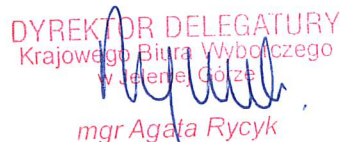 DYREKTOR DELEGATURY
Krajowego Biura Wyborczego
w Jeleniej Górze
mgr Agata Rycyk